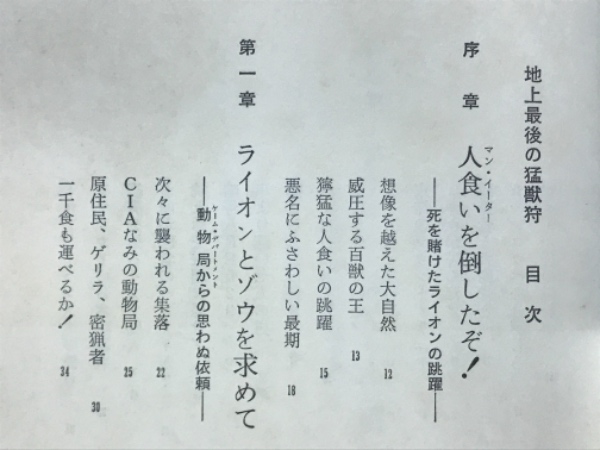 地上最後の猛獣狩　目次
序章　人食いを倒したぞ！
マン・イーター
——死を賭けたライオンの跳躍——
想像を越えた大自然　12
威圧する百獣の王　13
獰猛な人食いの跳躍　15
悪名にふさわしい最期　16
第一章　ライオンとゾウを求めて
——動物局からの思わぬ依頼——
ゲーム・デパートメント
次々に襲われる集落　22
CIAなみの動物局　25
原住民、ゲリラ、密猟者　30
一千食も運べるか！　34